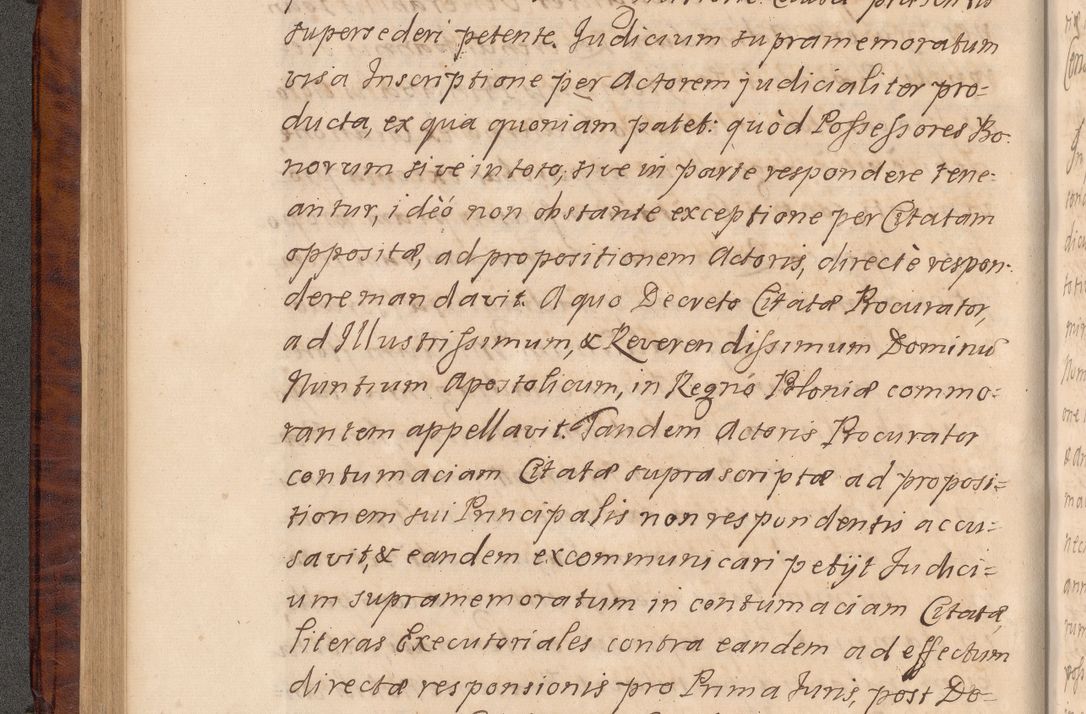 supersederi petente. Judicium supramemoratum
visa Inscriptione per Actorem judicialiter pro-
ducta, ex qua quoniam patet: quòd Possessores Bo-
norum sive in toto, sive in parte respondere tene-
antur, ideò non obstante exceptione per Citatam
opposita, ad propositionem Actoris, directè respon-
dere mandavit. A quo Decreto Citatæ Procurator,
ad Illustrissimum, & Reverendissimum Dominũ
Nuntium Apostolicum, in Regno Poloniæ commo-
rantem appellavit. Tandem Actoris Procurator
contumaciam Citatæ suprascriptæ ad proposi=
tionem sui Principalis non respondentis accu=
savit, & eandem excommunicari petijt Judici=
um supramemoratum in contumaciam Citatæ,
literas Executoriales contra eandem ad effectum
directæ responsionis pro Prima Juris, post Do-